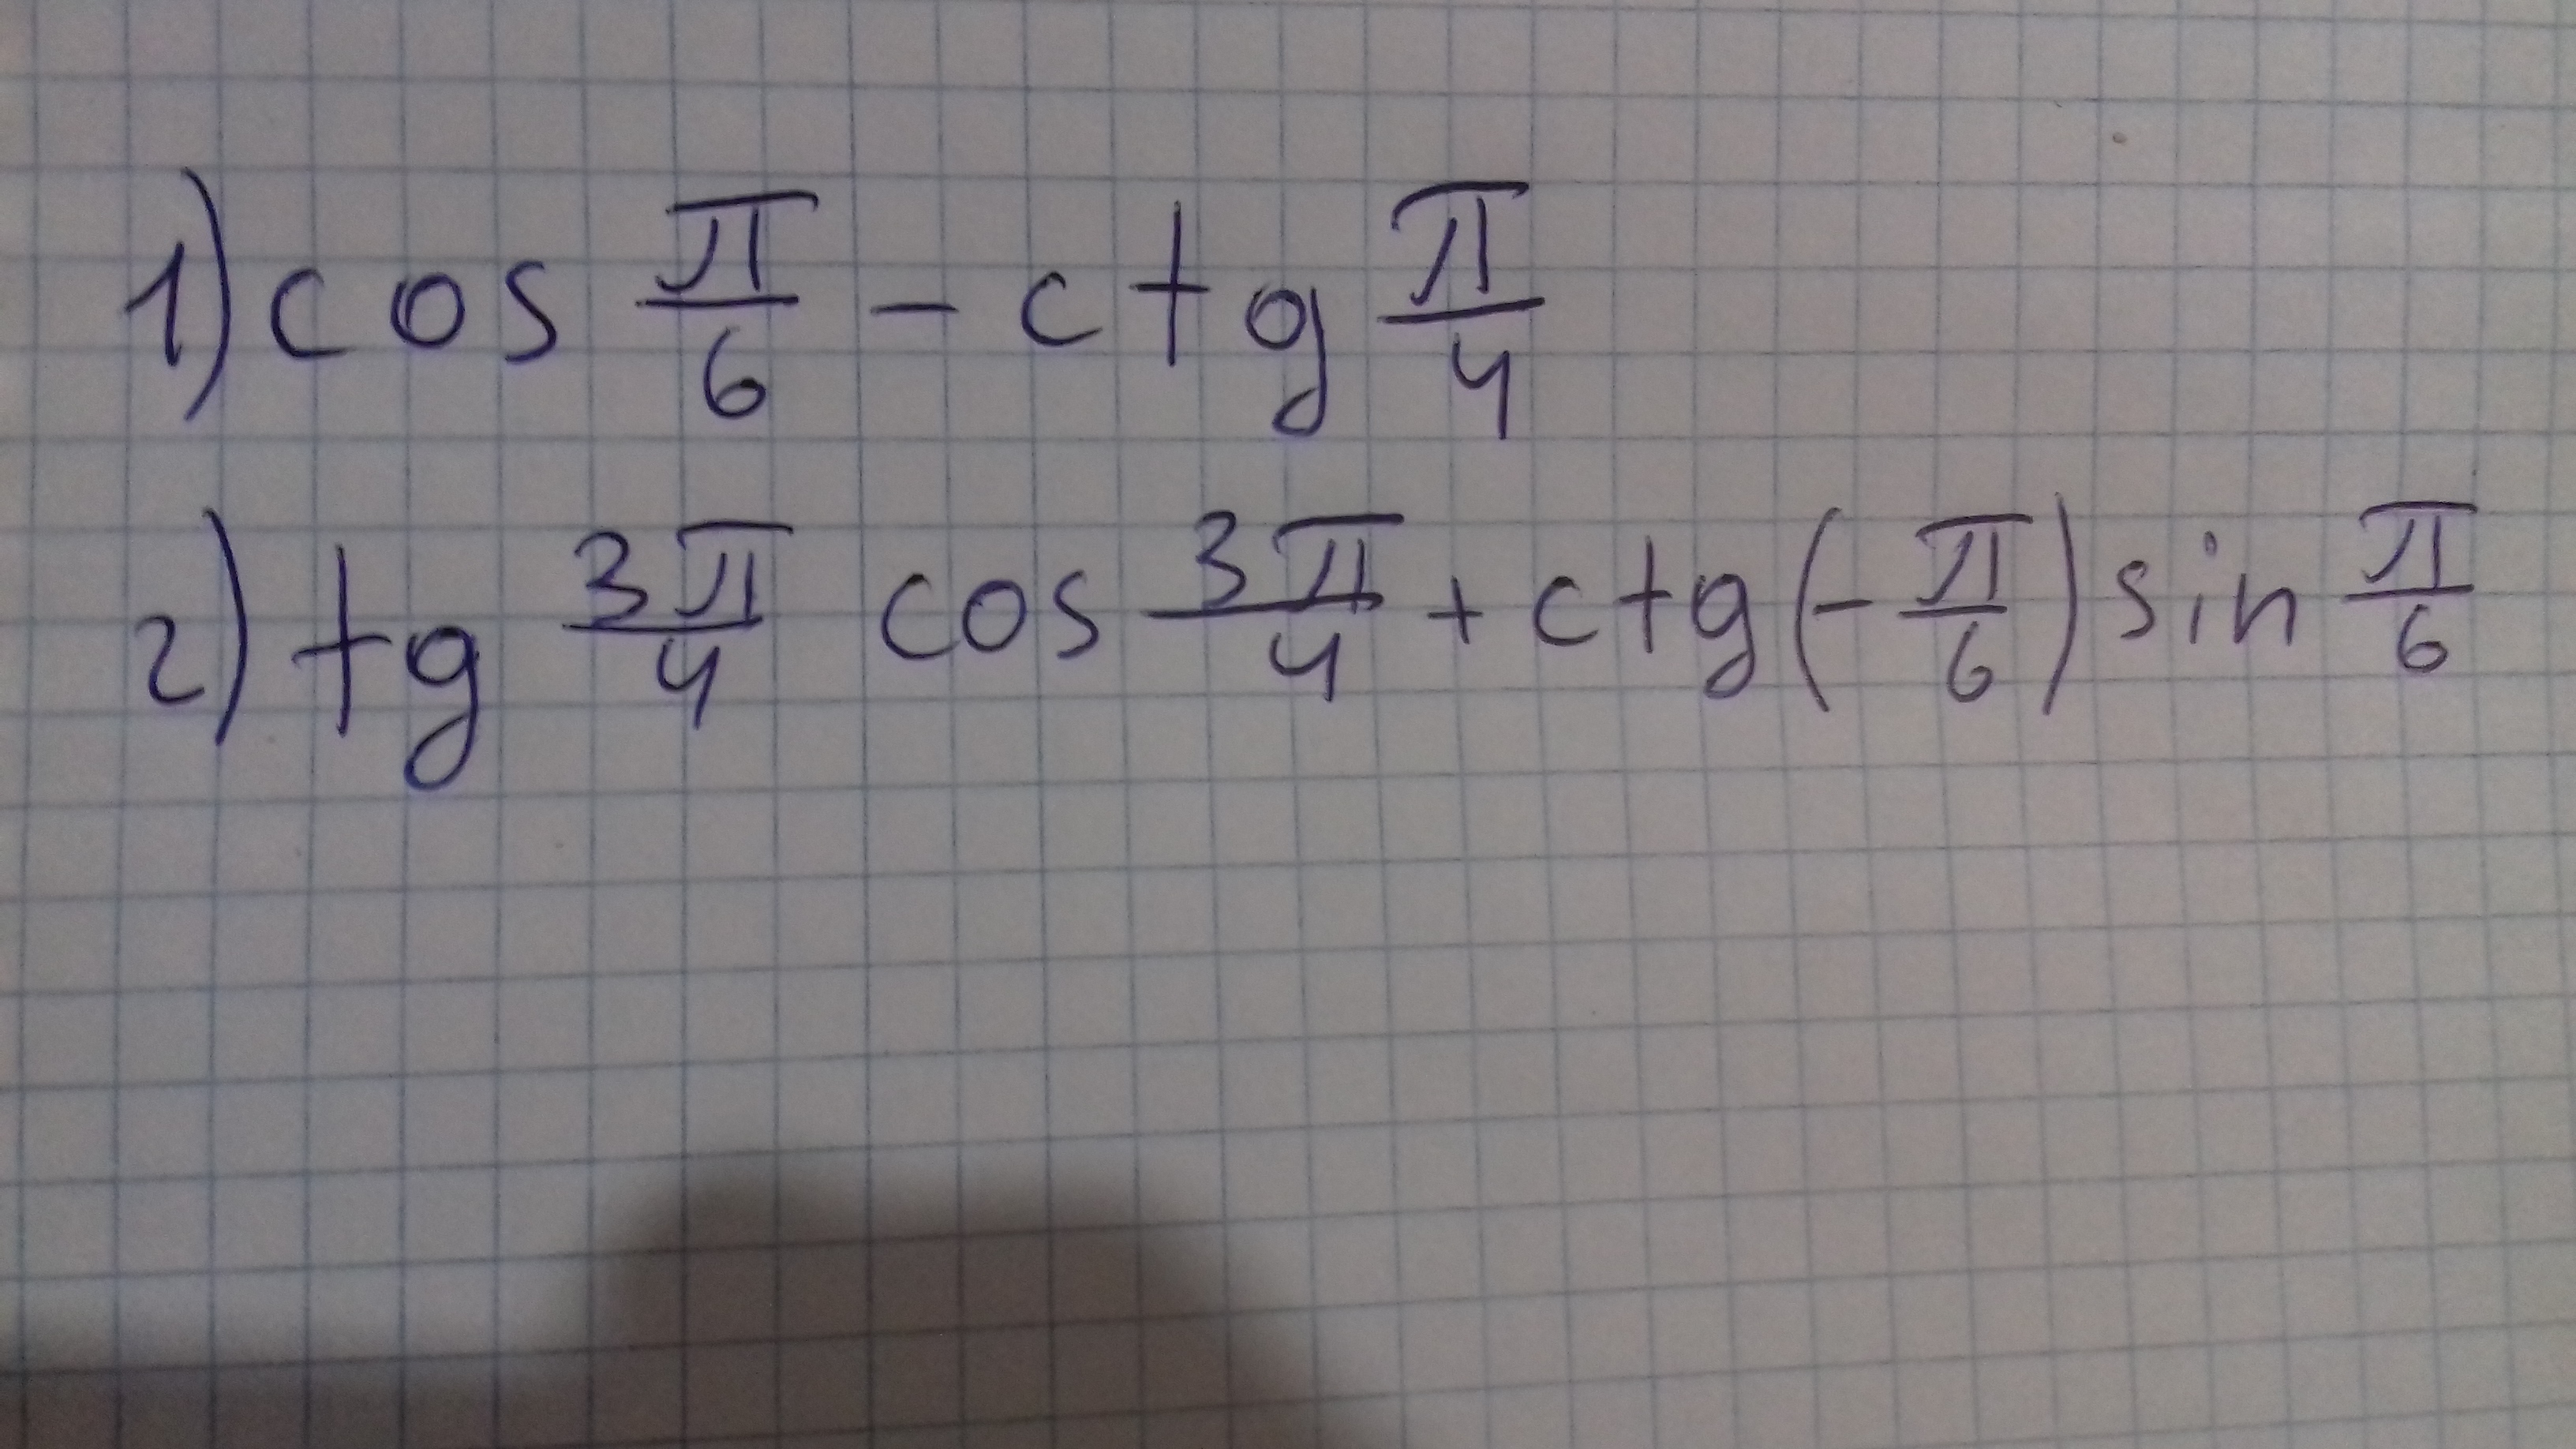 1) cos π/6 - ctg π/4
2) tg 3π/4 cos 3π/4 + ctg(-π/6) sin π/6